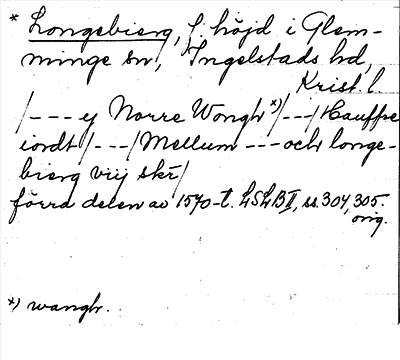 * Longebierg, f. höjd i Glem-
minge sn, Ingelstads hd,
Krist. l.
/---ej Norre Wongh*)/---/Hauffue
iordt/---/Mellum---och longe-
bierg viij skr/
förra delen av 1570-t. LSLB II, ss. 304, 305.
orig.
*) wangh.